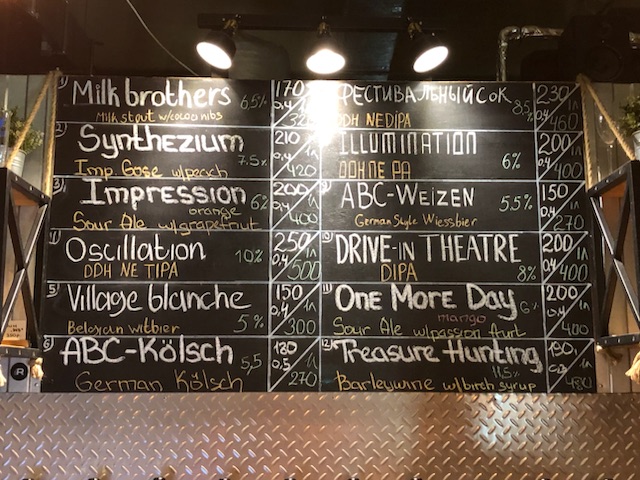 1) Milk brothers 6.5% 170
0.4 1л
Milk stout w/cocoa nibs
2) Synthezium 7.5% 210 1л
0.4 420
Imp. Gose w/peach
3) Impression 6% 200 1л
orange 0.4 400
Sour Ale w/grapefruit
Oscillation 10% 250 1л
DDH NE TIPA 0.4 500
5) Village blanche 150 1л
Belgian witbier 5% 0.4 300
6) ABC-Kölsch 5,5 1л
0.5 270
German Kölsch
ФЕСТИВАЛЬНЫЙ СОК 8.5% 230 1л
DDH NE DIPA 0.4 460
ILLUMINATION 200 1л
DDH NE PA 6% 0.4 400
ABC-WEIZEN 5.5% 150 1л
German Style Wiessbier 0.4 270
10) DRIVE-IN THEATRE 200 1л
DIPA 8% 0.4 400
11) One More Day 6% 200 1л
mango 0.4 400
Sour Ale w/passion
12) Treasure Hunting 190
11.5% 1л
Barleywine w/birch syrup 480